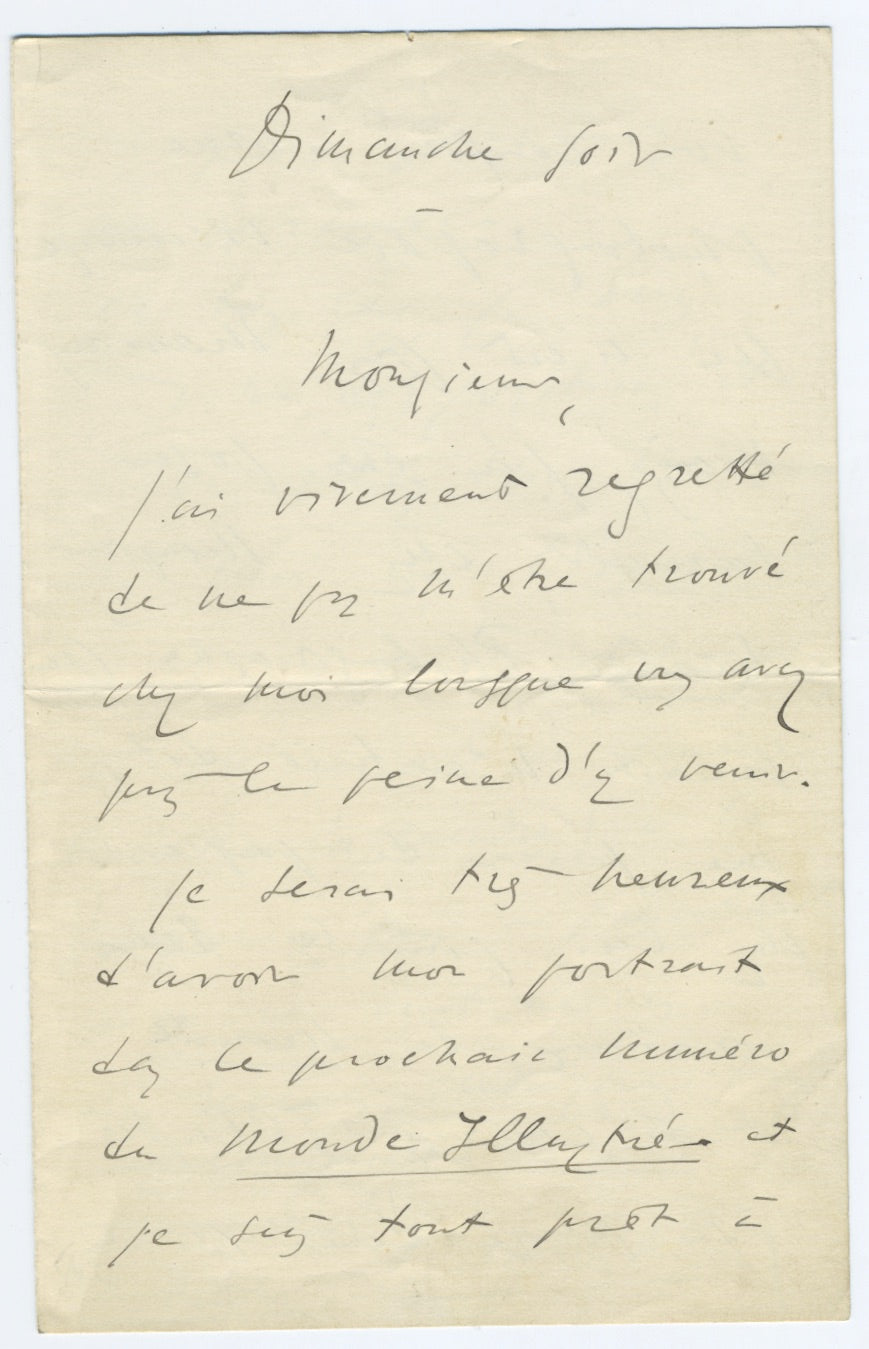 Dimanche soir
—
Monsieur,
J'ai vivement regretté
de ne pas m'être trouvé
chez moi lorsque vous avez
pris la peine d'y venir.
Je serai très heureux
d'avoir mon portrait
dans le prochain numéro
du Monde Illustré et
je suis tout prêt à